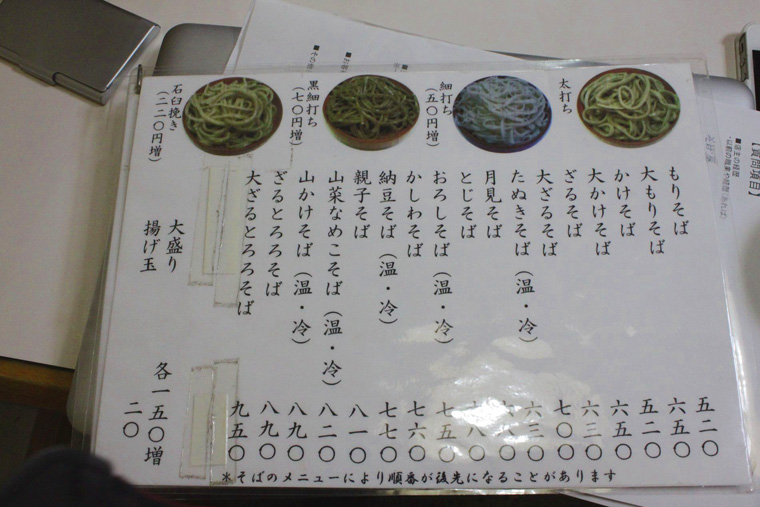 太打ち
細打ち
(五〇円増)
黒細打ち
(七〇円増)
石臼挽き
(二二〇円増)
もりそば 五二〇
大もりそば 六五〇
かけそば 五二〇
大かけそば 六五〇
ざるそば 六三〇
大ざるそば 七〇〇
たぬきそば(温・冷) 六三〇
月見そば 六八〇
とじそば
おろしそば(温・冷) 七五〇
かしわそば 七六〇
納豆そば(温・冷) 七七〇
親子そば 八一〇
山菜なめこそば(温・冷) 八二〇
山かけそば(温・冷) 八九〇
ざるとろろそば 八九〇
大ざるとろろそば 九五〇
大盛り 各一五〇増
揚げ玉 二〇
＊そばのメニューにより順番が後先になることがあります
【質問項目】
■店主の経歴